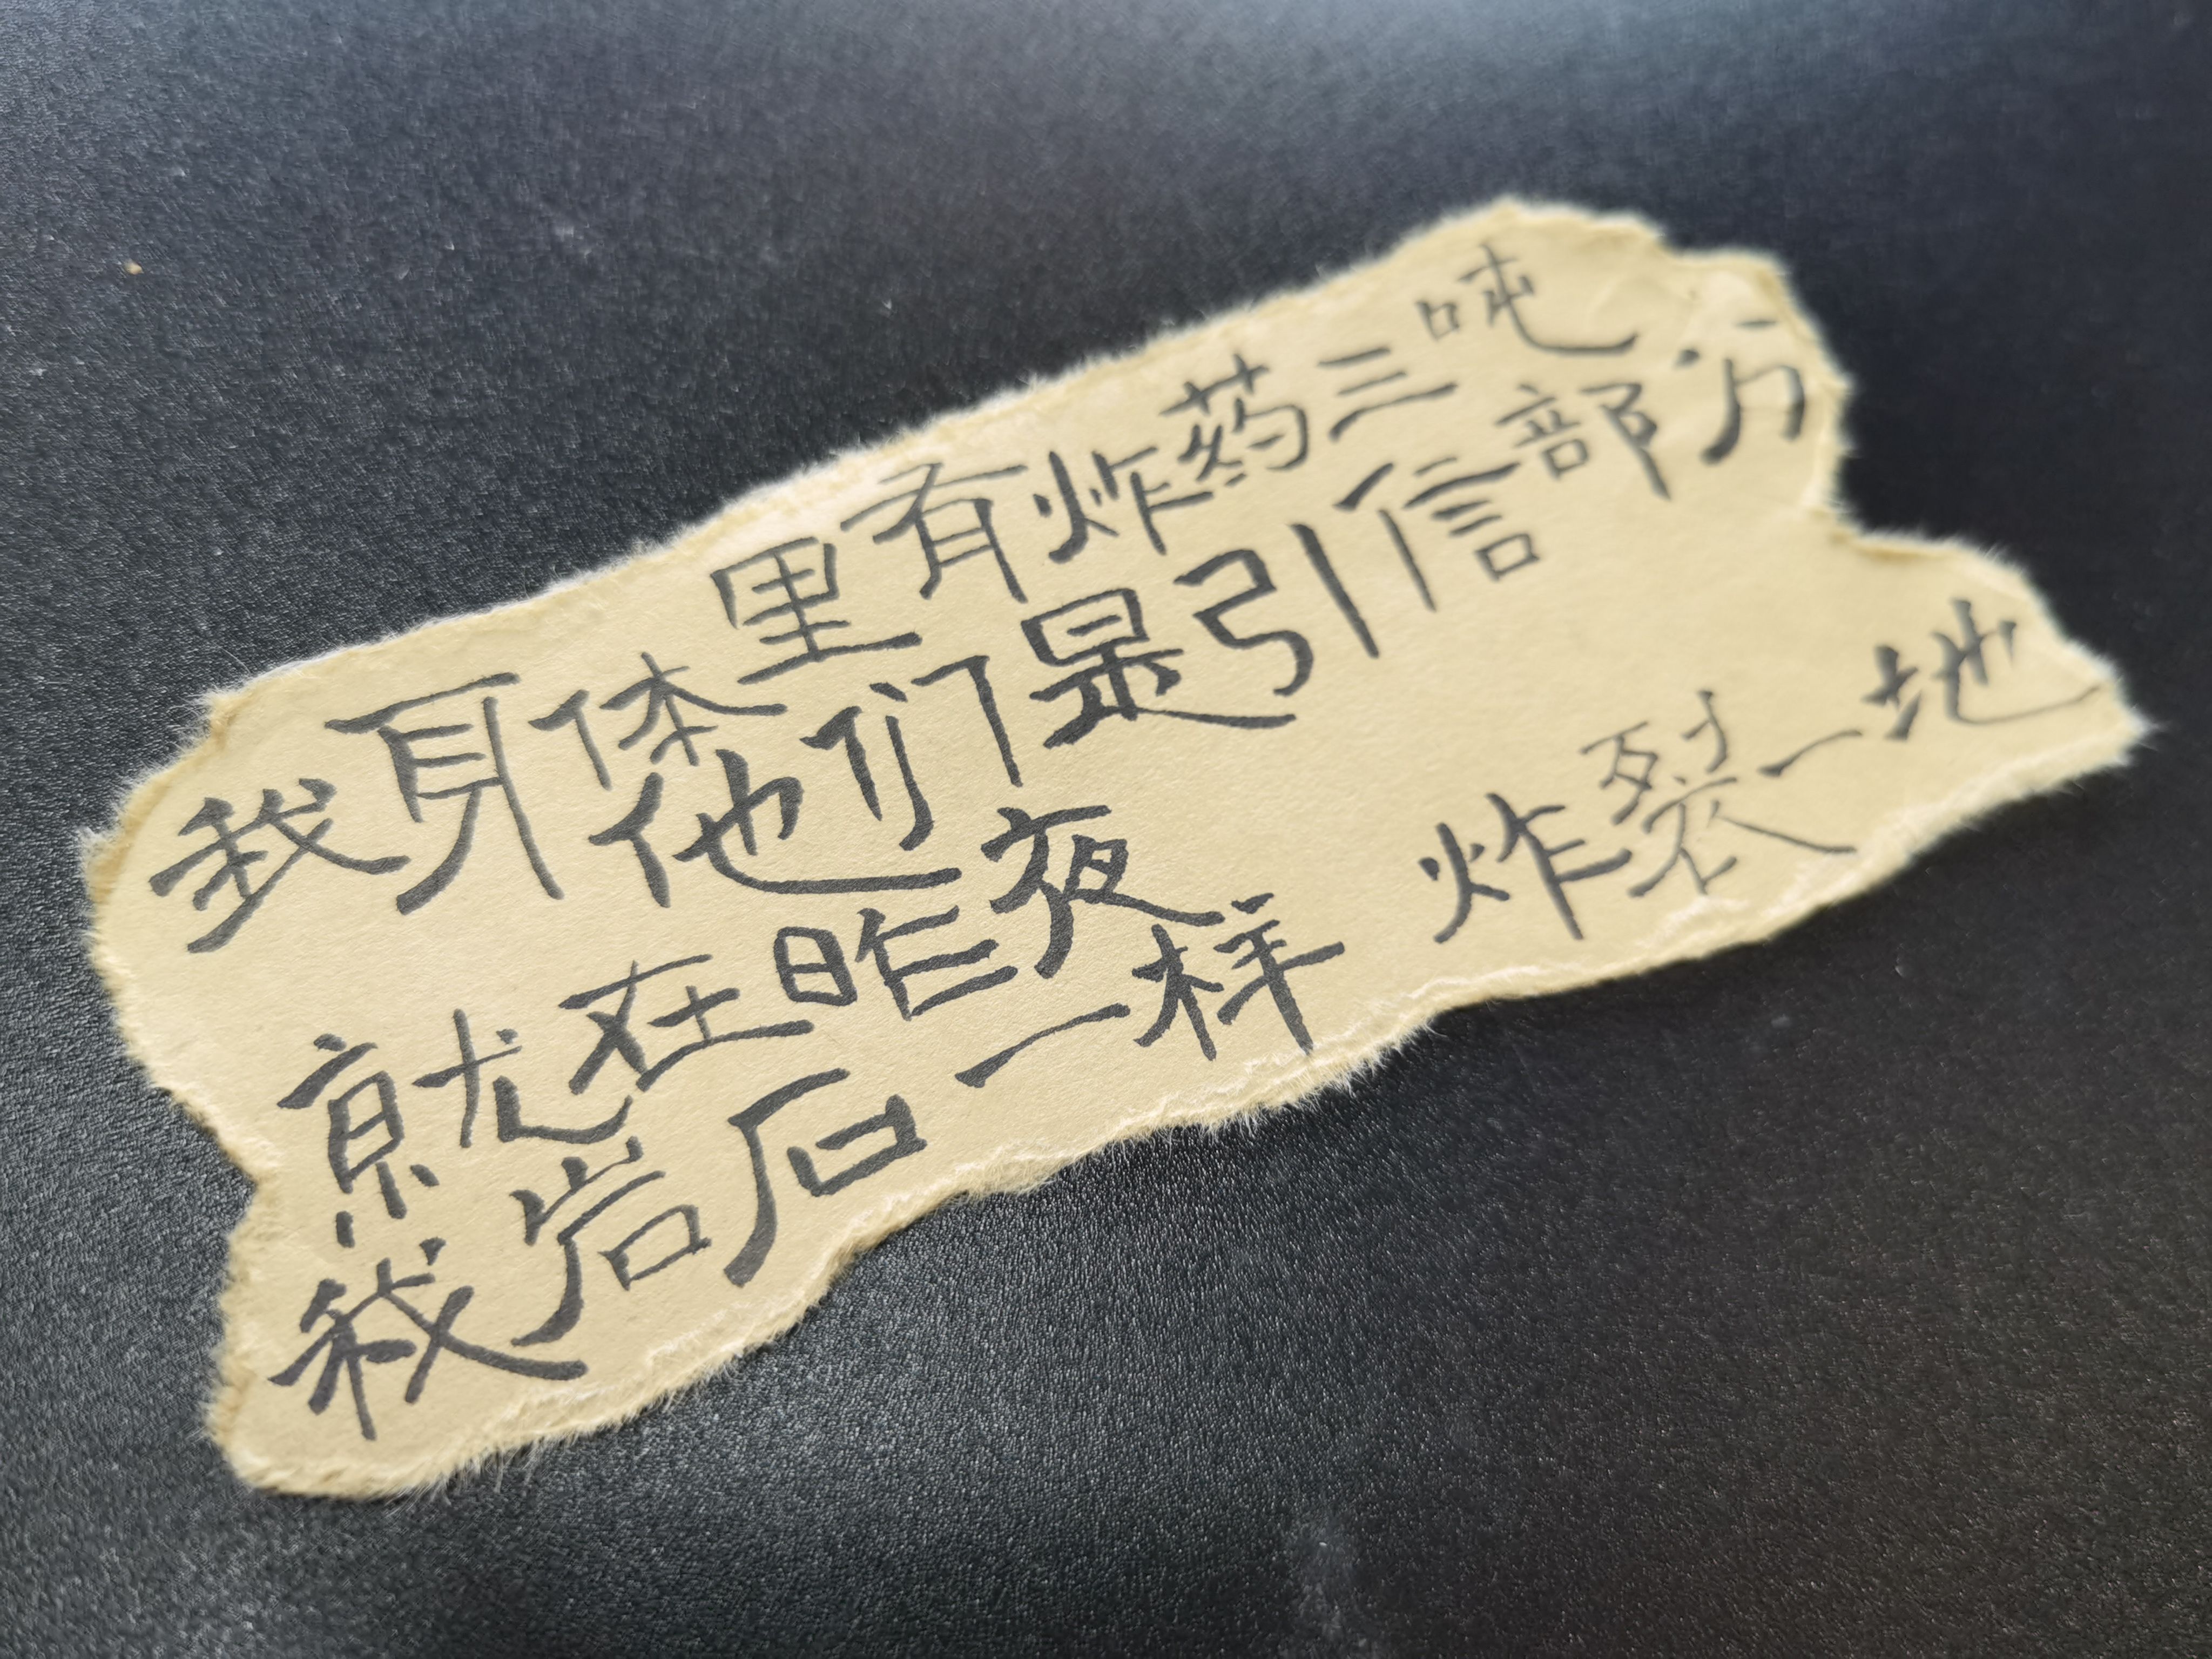 我身体里有炸药三吨
他们是引信部分
就在昨夜
我岩石一样 炸裂一地